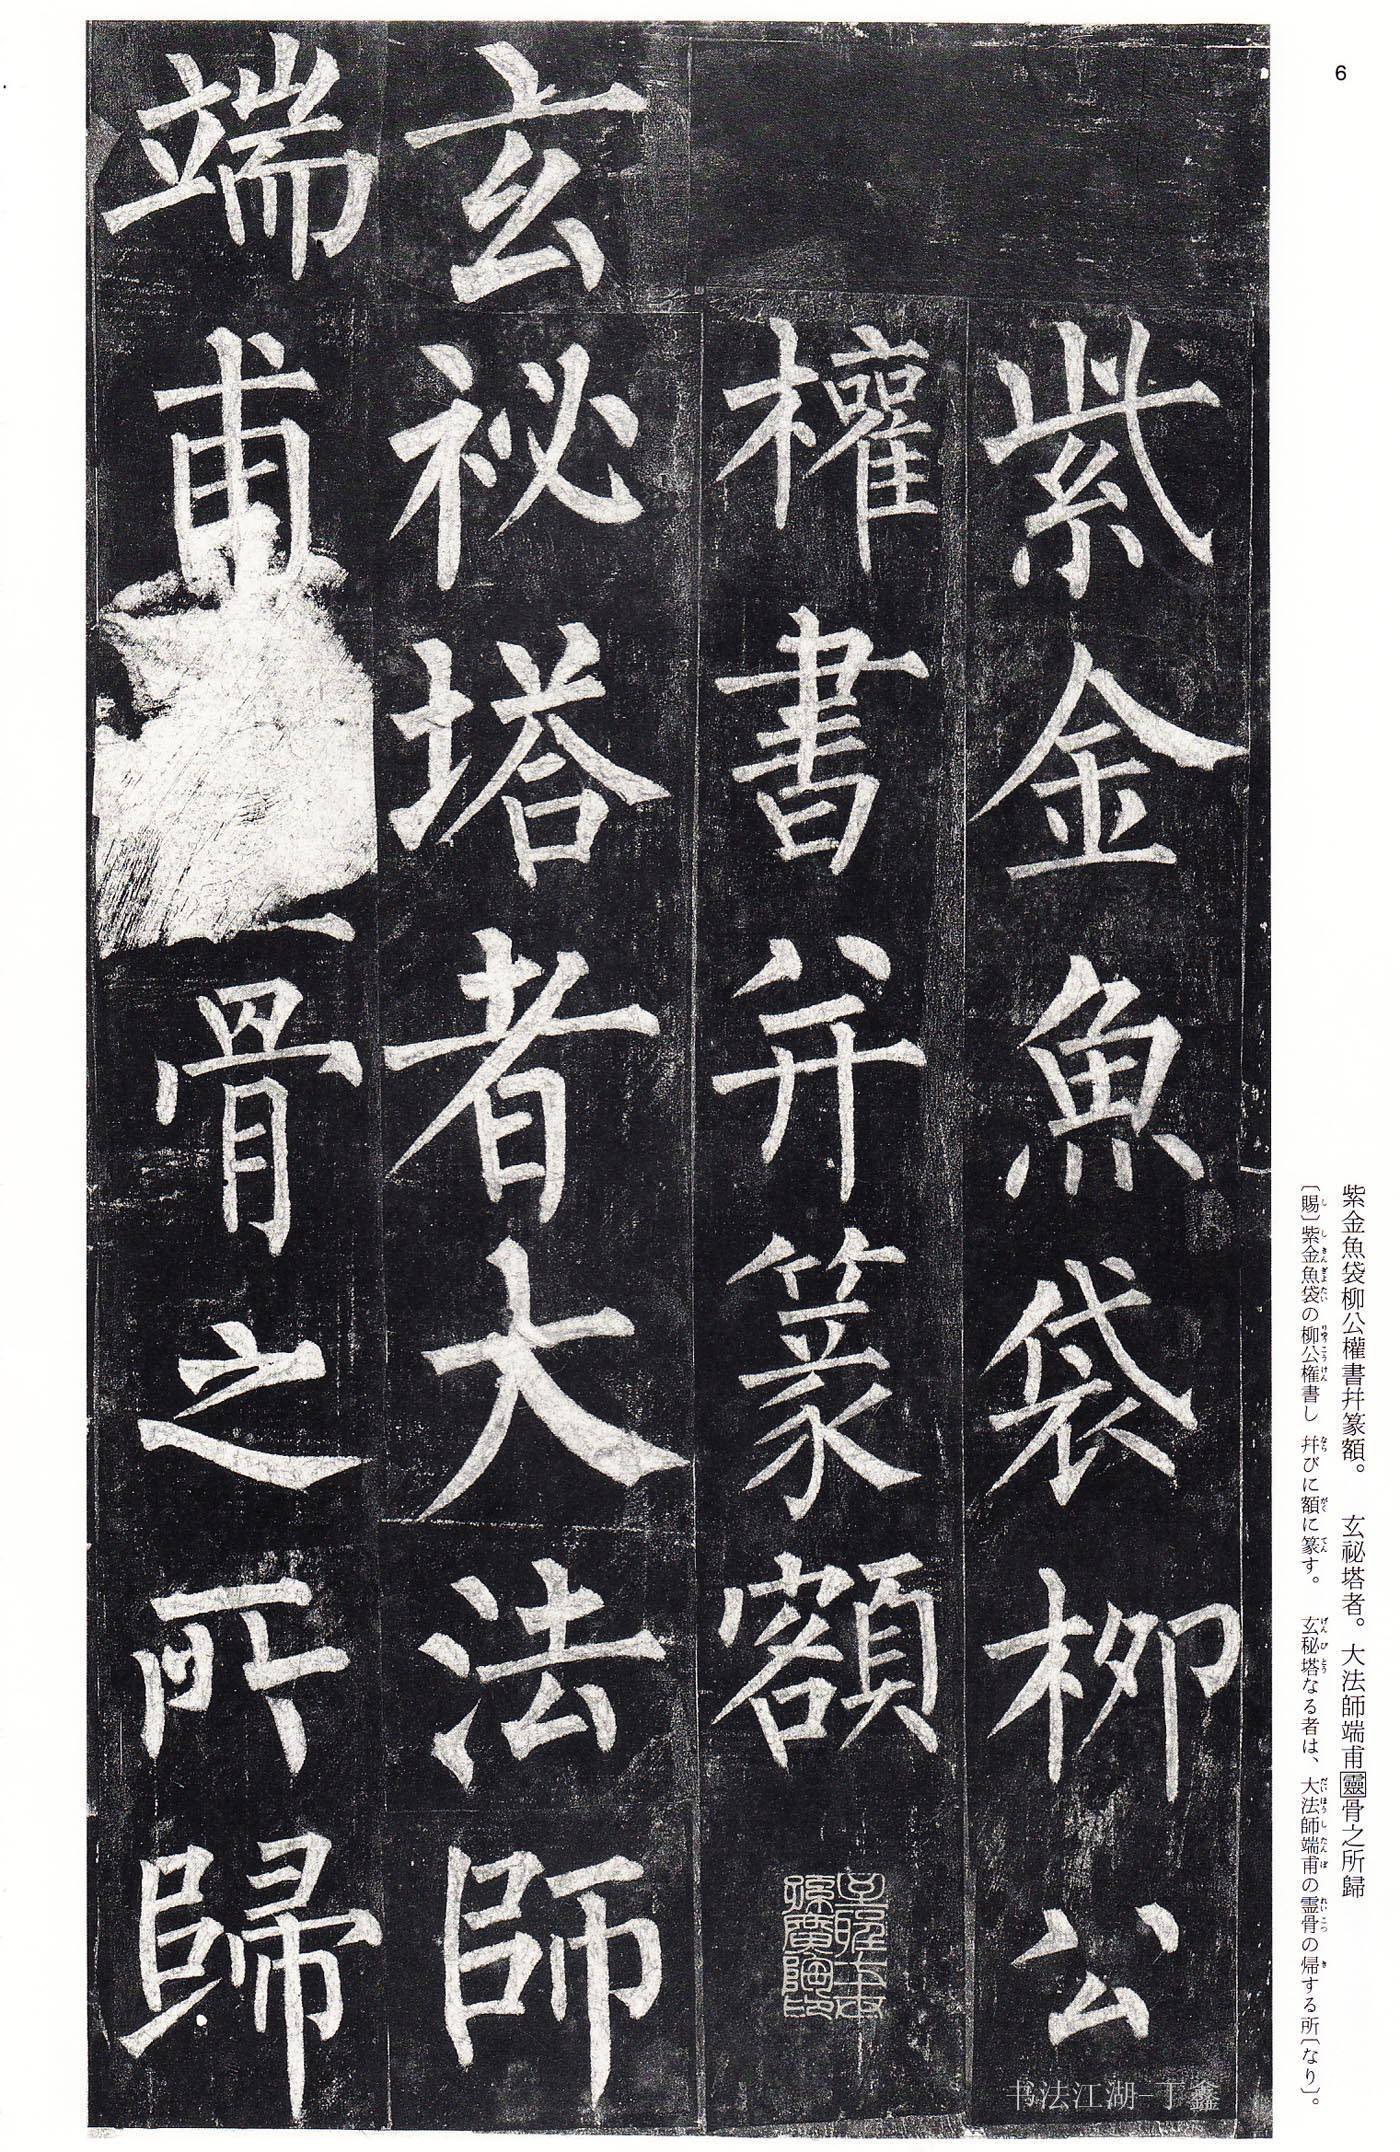 6
紫金魚袋柳公權書幷篆額。　玄祕塔者。大法師端甫靈骨之所歸
〔賜〕紫金魚袋の柳公権書し　幷びに額に篆す。　玄秘塔なる者は、大法師端甫の霊骨の帰する所〔なり〕。
紫金魚袋柳公
權書并篆額
玄祕塔者大法師
端甫骨之所歸
书法江湖-丁鑫